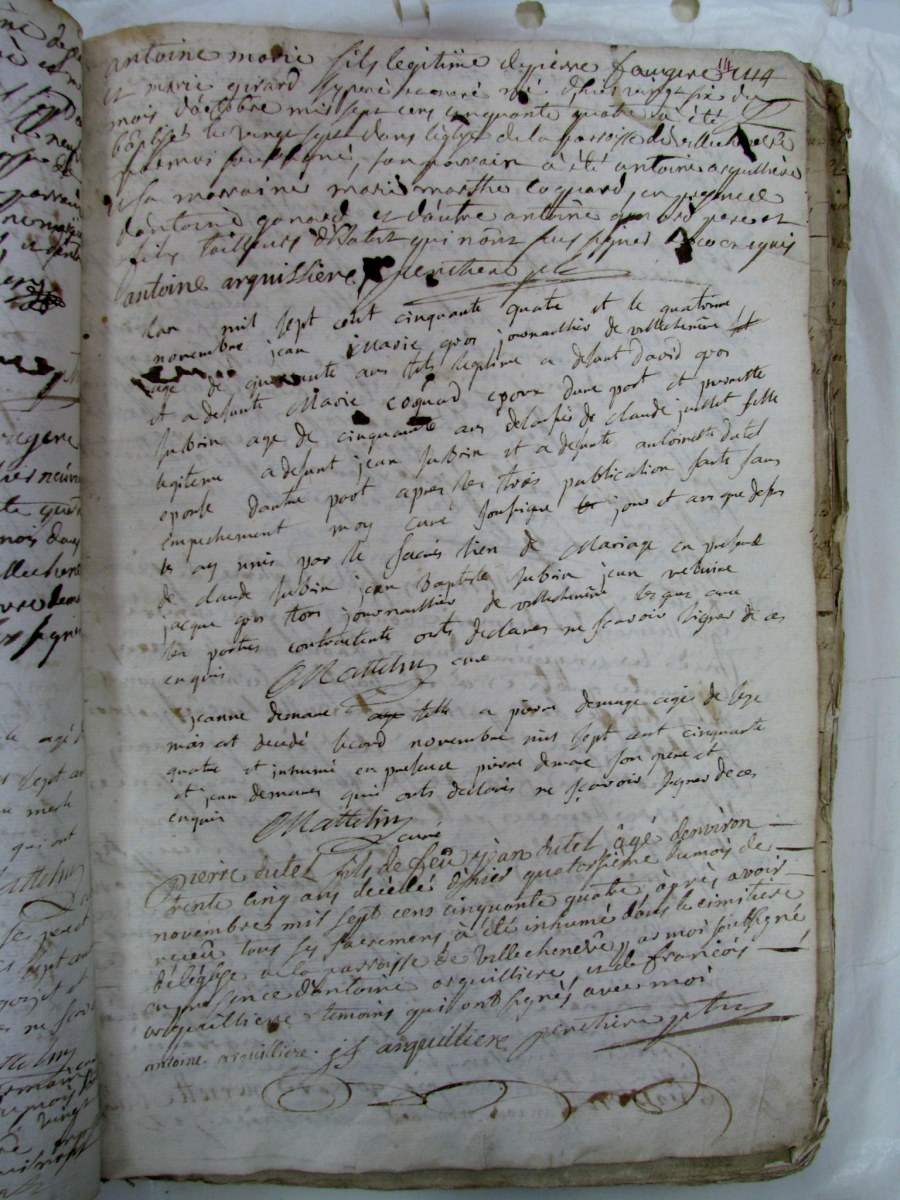 antoine marie fils legitime de pierre fougere 114
et marie girard né d'hier vingt six du
mois d'octobre mil sept cens cinquante quatre a été
baptisé le vingt sept dans l'église de la parroisse de villecheneve
par moi soussigné, son parrain à été antoine arquilliere
et sa marraine marie marthe coquard, en presence
d'antoine ganard et d'autre antoine pere et
fils tailleurs d'habits qui n'ont sceu signer de ce enquis
antoine arquilliere
lan mil sept cent cinquante quatre et le quatorze
novembre jean Marie gros journaillier de villecheneve
age de quarante ans fils legitime a defunt david gros
et a defunte Marie coquard epoux dune part et pierrette
Subrin age de cinquante ans delaissée de claude juillet fille
legitime a defunt jean Subrin et a defunte antoinette dutel
epouse dautre part apres les trois publication faite sans
empechement moy curé soussigné jour et ans que dessus
les ay unis par le sacrés lien de Mariage en presence
de claude Subrin jean Baptiste Subrin jean
jacque gros tous journaillier de villecheneve lesquels avec
les parties contractente onts declares ne scavoir signer de ce
enquis Mattelin curé
jeanne demare fille a pierre demare agée de seze
mois est decedé second novembre mil sept cent cinquante
quatre et inhumé en presence pierre demare son pere et
et jean demares quis onts declares ne scavoir signer de ces
enquis Mattelin
curé
Pierre dutel fils de feu jean dutel âgé denviron
trente cinq ans decedés d'hier quatorsième du mois de
novembre mil sept cens cinquante quatre, après avoir
receu tous ses sacremens à été inhumé dans le cimitiere
de léglise de la parroisse de villecheneve par moi soussigné
en presence d'antoine arquilliere, et de francois
arquilliere temoins qui ont signés avec moi
antoine arquilliere. jf arquilliere